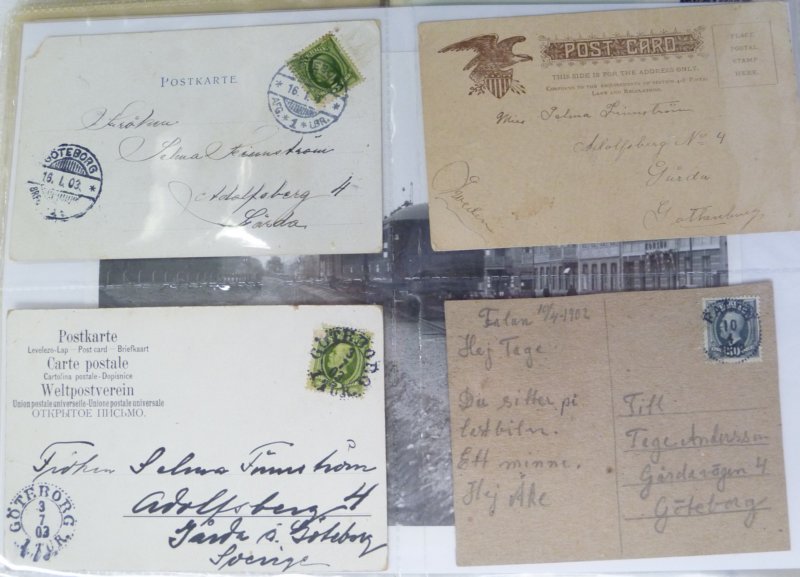 POSTKARTE
Fröken
Selma Finnström
Adolfsberg 4
Gårda
GÖTEBORG
16.1.03.
16.1.
AFG. * 1 * LBR.
POST CARD
THIS SIDE IS FOR THE ADDRESS ONLY.
PLACE
POSTAL
STAMP
HERE.
Miss Selma Finnström
Adolfsberg No 4
Gårda
Gothenburg
Sweden
Postkarte
Levelezo-Lap — Post card — Briefkaart
Carte postale
Cartolina postale - Dopisnice
Weltpostverein
Union postale universelle-Unione postale universale
ОТКРЫТОЕ ПИСЬМО.
GÖTEBORG
Fröken Selma Finnström
Adolfsberg 4
Gårda i. Göteborg
Sverige
GÖTEBORG
3
7
03
1 TUR.
Falun 10/4-1902
Hej Tage
Du sitter på
lastbiln.
Ett minne.
Hej Åke
FALUN
10
4
Till
Tage Andersson
Gårdavägen 4
Göteborg